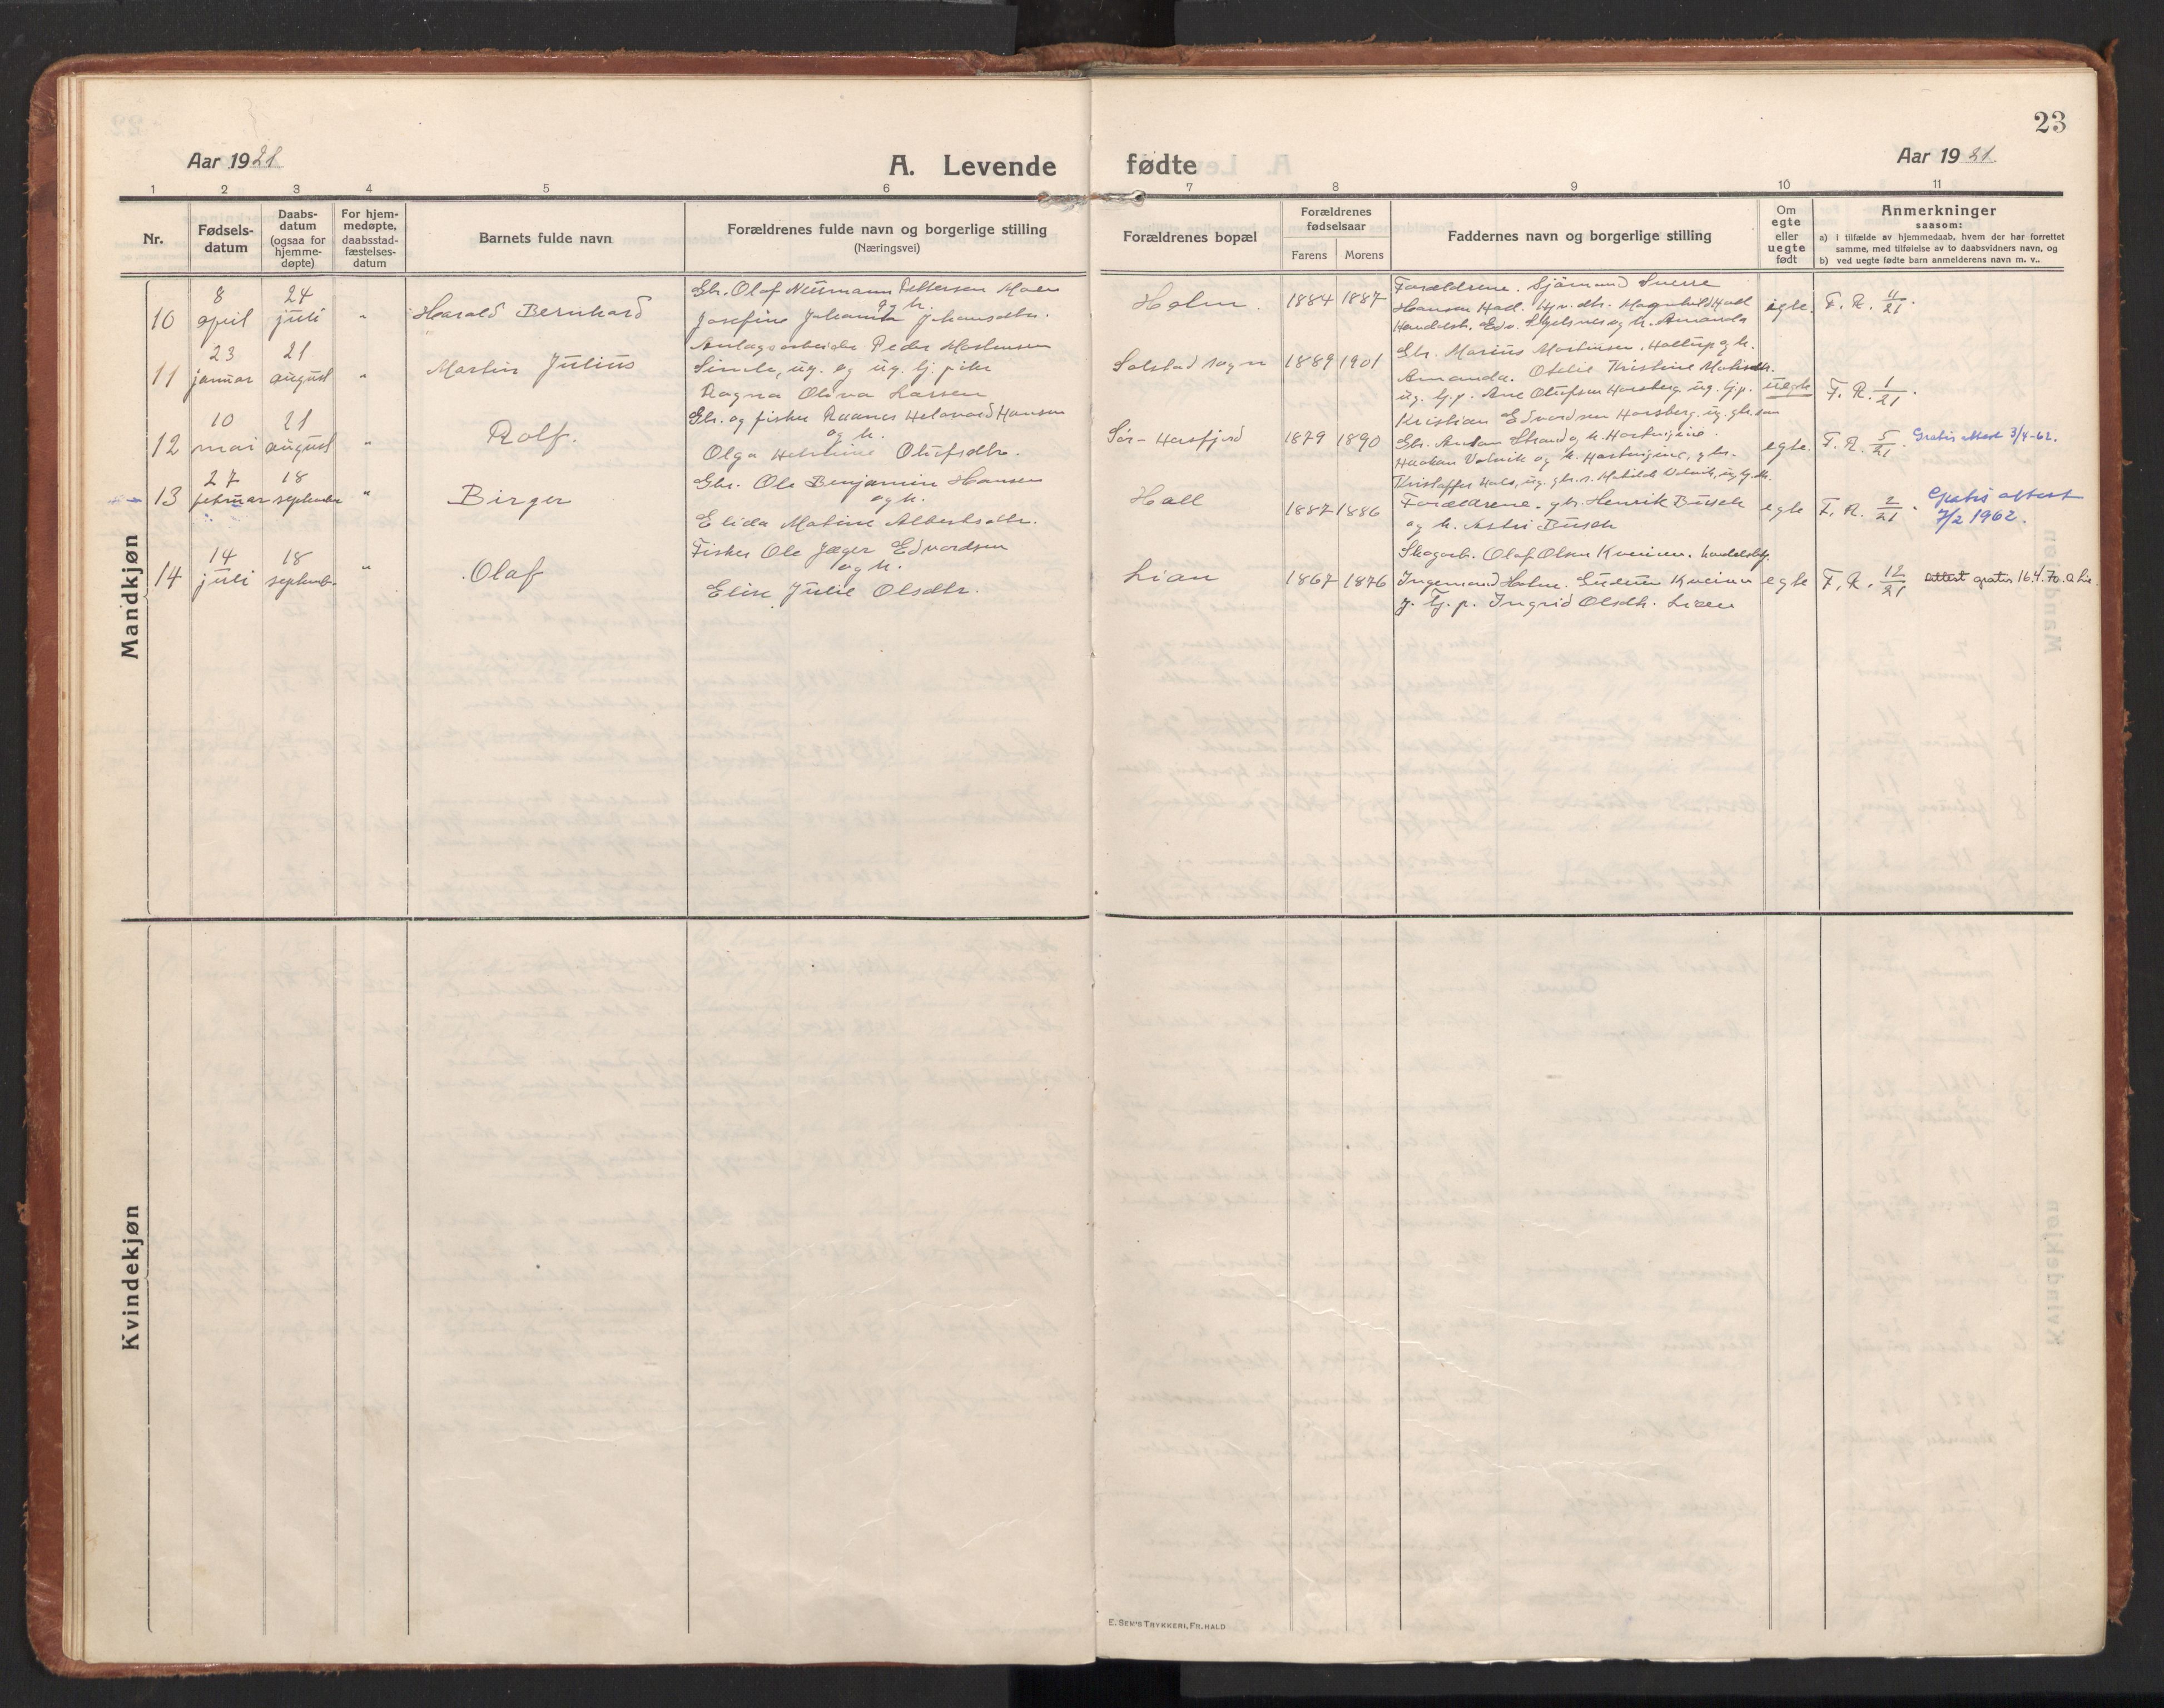 23
Aar 1921
A. Levende fødte
Aar 1921.
1 2 3 4 5 6 7 8 9 10 11
Nr.
Fødsels-
datum
Daabs-
datum
(ogsaa for
hjemme-
døpte)
For hjem-
medøpte,
daabsstad-
fæstelses-
datum
Barnets fulde navn
Forældrenes fulde navn og borgerlige stilling
(Næringsvei)
Forældrenes bopæl
Forældrenes
fødselsaar
Farens Morens
Faddernes navn og borgerlige stilling
Om
egte
eller
uegte
født
Anmerkninger
saasom:
a) i tilfælde av hjemmedaab, hvem der har forrettet
samme, med tilføielse av to daabsvidners navn, og
b) ved uegte fødte barn anmelderens navn m. v..
Mandkjøn
10
8
april
24
juli
"
Harald Bernhard
Gbr. Olaf Neumann Pettersen Moen
og h.
Josefine Johanna Johansdtr.
Holm.
1884 1887
Forældrene. Sjömand Sverre
Hansen Hall. Hv. dtr. Magnhild Hall
Handelsb. Edv. og h. Amanda
egte.
F. R. 11/21.
11
23
januar
21
august
"
Martin Julius
Anlægsarbeider Peder Mortensen
Simle, ug. og ug. tj. pike
Ragna Oliva Larsen
Solstad sogn
1889 1901
Gbr. Marius Martinsen, og h.
Amanda. Otelie Kristine
ug. tj. p. Ane Olufsen Horsberg, ug. tj. p.
Kristian Edvardsen Horsberg. ug. gbr. søn
uegte
F. R. 1/21.
12
10
mai
21
august
"
Rolf.
Gbr. og fisker Hansen
og h.
Olga Olufsdtr.
Sør-Horsfjord
1879 1890
Gbr. Anton Strand og h. Hartvigine.
Haakon og h. Hartvigine, gbr.
Kristoffer ug. gbr. s. Matilde
egte.
F. R. 5/21. Gratis attest 3/4-62.
13
27
februar
18
september
"
Birger
Gbr. Ole Benjamin Hansen
og h.
Elida Matine Albertsdtr.
Hall
1887 1886
Forældrene. gbr. Henrik Busch
og h. Astri Busch
egte
F. R. 2/21. Gratis attest
7/2 1962.
14
14
juli
18
septemb.
"
Olaf
Fisker Ole Jæger Edvardsen
og h.
Elise Julie Olsdtr.
Lian
1867 1876
Skogarb. Olaf Olsen Kveinen. handelsbtj.
Ingemand Holm. Gudrun Kveinen
tj. p. Ingrid Olsdtr. Lian
egte
F. R. 12/21 attest gratis 16.4.70.
Kvindekjøn
E. SEM'S TRYKKERI, FR.HALD